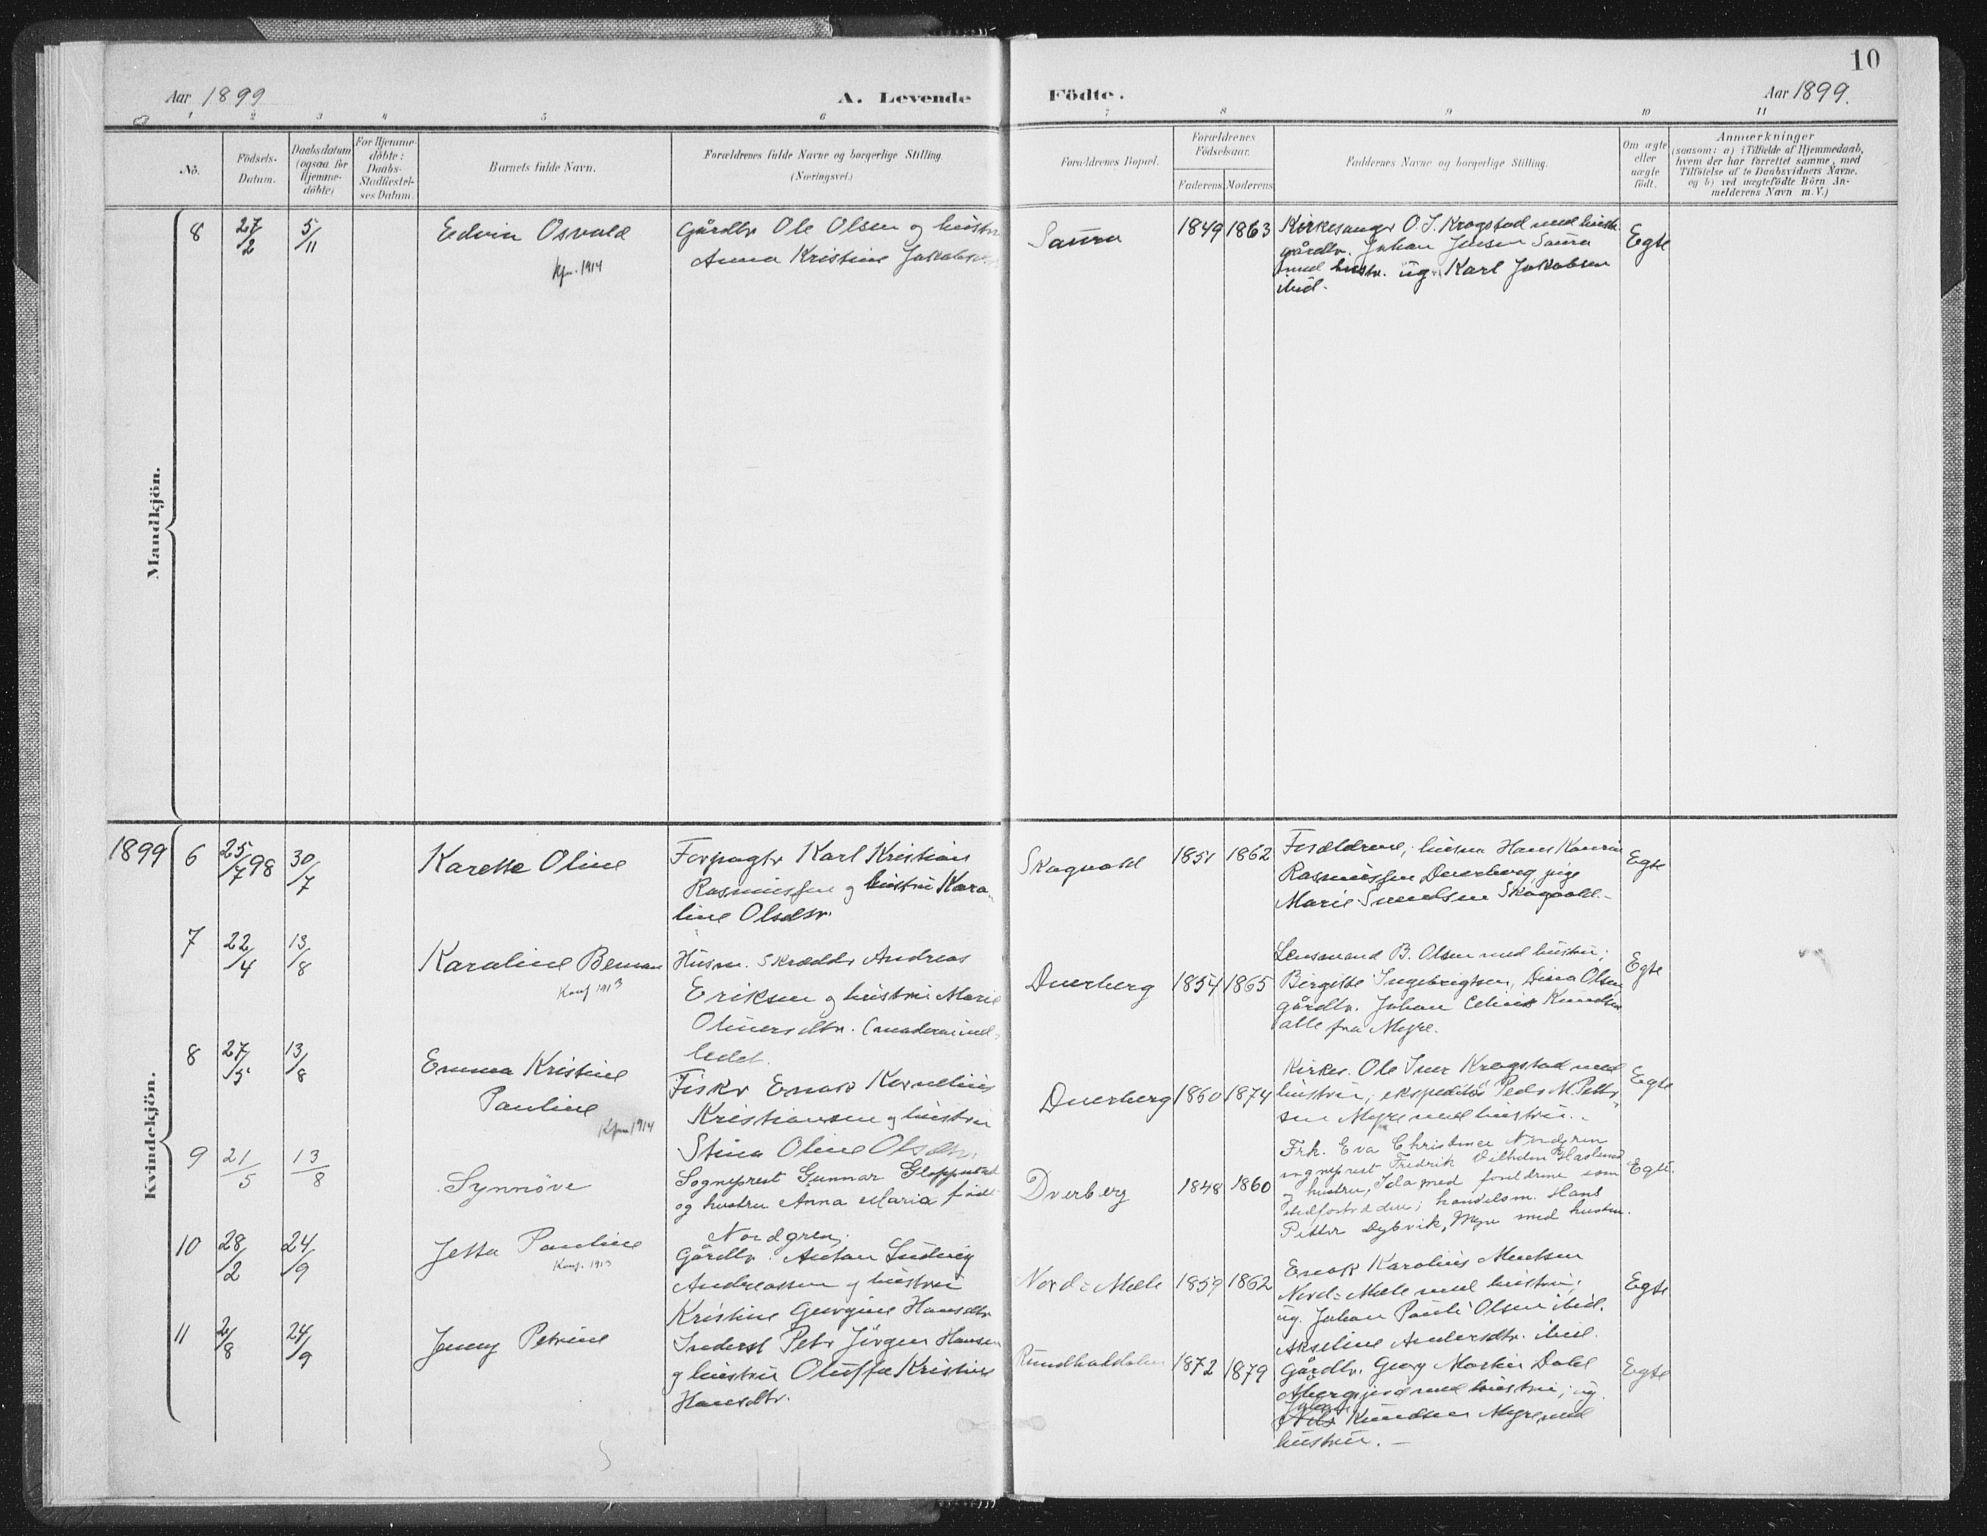 10
Aar 1899
A. Levende
Födte.
Aar 1899.
1 2 3 4 5 6 7 8 9 10 11
No.
Födsels-
Datum.
Daabsdatum
(ogsaa for
Hjemme-
döbte)
For Hjemme-
döbte:
Daabs-
Stadfæstel-
ses Datum.
Barnets fulde Navn.
Forældrenes fulde Navne og borgerlige Stilling.
(Næringsvei.)
Forældrenes Bopæl.
Forældrenes
Födselsaar.
Faderens
Moderens
Faddernes Navne og borgerlige Stilling.
Om ægte
eller
uægte
födt.
Anmærkninger
(saasom: a) i Tilfælde af Hjemmedaab,
hvem der har forrettet samme, med
Tilföielse af to Daabsvidners Navne,
og b) ved uægtefödte Börn An-
melderens Navn m. V.)
Mandkjön.
8
27/2
5/11
Edvin Osvald
kfm. 1914
Gårdbr Ole Olsen og hustru
Anna Kristine Jakobs
Saura
1849
1863
Kirkesanger O. I. Krogstad med hustr.
gårdbr. Johan Jensen Saura
med hustr. ug. Karl Jakobsen
ibid.
Egte
Kvindekjön.
1899
6
25/7 98
30/7
Karette Oline
Forpagtr Karl Kristian
Rasmussen og hustru Karo-
line Olsdtr.
Skogvold
1851
1862
Forældrene, husm Hans Konrad
Rasmussen Dverberg, pige
Marie Svendsen Skogvold.-
Egte
7
22/4
13/8
Karoline Beman
Konf 1913
Husm. Skrædder Andreas
Eriksen og hustru Marie
Olinersdtr.
ledet.
Dverberg
1854
1865
Lensmand B. Olsen med hustru;
Birgitte Ingebrigtsen, Dina Olsen
gårdbr. Johan Knudsen
alle fra Myre.
Egte
8
27/5
13/8
Emma Kristine
Pauline
Kfm 1914
Fiskr Enok Kornelius
Kristiansen og hustru
Stina Oline Olsdtr.
Dverberg
1860
1874
Kirkes. Ole Iver Krogstad med
hustru, ekspeditör Peder M. Petter-
sen Myre med hustru.
Egte
9
21/5
13/8
Synnöve
Sogneprest Gunnar Gloppestad
og hustru Anna Maria födt
Nordgren.
Dverberg
1848
1860
Frk. Eva Christence Nordgren
sogneprest Fredrik Vilhelm Haslund
og hustru, Ida med forældrene som
stedfortrædere; handelsm. Hans
Petter Dybvik, Myre med hustru.
Egte.
10
28/2
24/9
Jetta Pauline
Konf. 1913
Gårdbr. Anton Ludvig
Andreassen og hustru
Kristine Georgine Hansdtr
Nord-Mele
1859
1862
Enok Karolius
Nord-Mele med hustru;
ug. Johan Pauli Olsen ibid.
Akseline Andersdtr. ibid.
Egte
11
2/8
24/9
Jenny Petrine
Inderst Petr Jörgen Hansen
og hustru Oluffa Kristine
Hansdtr.
1872
1879
Gårdbr. Georg Martin Dahl
Åbergsjord med hustru; ug.
Johan
Knudsen Myre, med
hustru.-
Egte